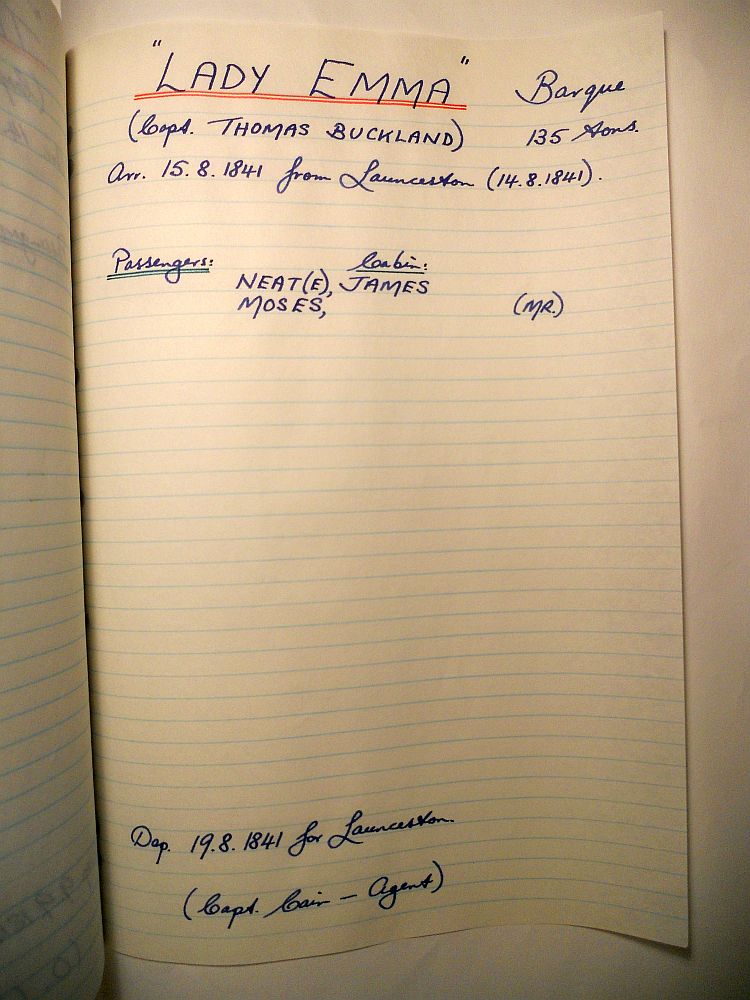 "LADY EMMA" Barque
(Capt. THOMAS BUCKLAND) 135 tons.
Arr. 15.8.1841 from Launceston (14.8.1841).
Passengers: Cabin:
NEAT(E), JAMES
MOSES, (MR.)
Dep. 19.8.1841 for Launceston.
(Capt. Cain – Agent)